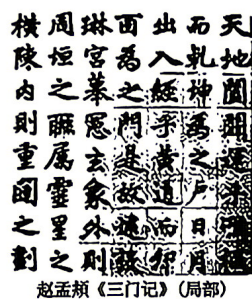 天地闔闢運乎鴻樞
而乾坤為之戶日月
出入經乎黃道而卯
酉為之門是故建設
琳宮摹憲玄象外則
周垣之聯属靈星之
橫陳內則重闥之劃
赵孟頫《三门记》（局部）